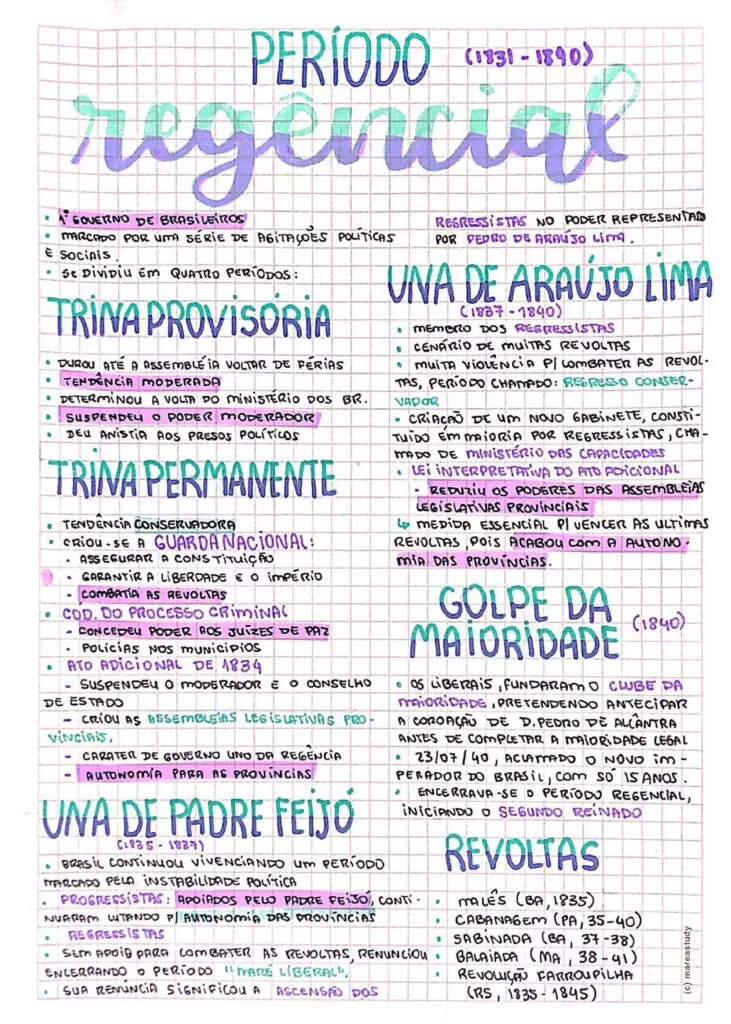 PERÍODO (1831 - 1840)
regêncial
• 1º GOVERNO DE BRASILEIROS
• MARCADO POR UMA SÉRIE DE AGITAÇÕES POLÍTICAS
E SOCIAIS.
• SE DIVIDIU EM QUATRO PERÍODOS:
TRINA PROVISÓRIA
• DUROU ATÉ A ASSEMBLÉIA VOLTAR DE FÉRIAS
• TENDÊNCIA MODERADA
• DETERMINOU A VOLTA DO MINISTÉRIO DOS BR.
• SUSPENDEU O PODER MODERADOR
• DEU ANISTIA AOS PRESOS POLÍTICOS
TRINA PERMANENTE
• TENDÊNCIA CONSERVADORA
• CRIOU-SE A GUARDA NACIONAL:
- ASSEGURAR A CONSTITUIÇÃO
- GARANTIR A LIBERDADE E O IMPÉRIO
- COMBATIA AS REVOLTAS
• CÓD. DO PROCESSO CRIMINAL
- CONCEDEU PODER AOS JUÍZES DE PAZ
- POLÍCIAS NOS MUNICÍPIOS
• ATO ADICIONAL DE 1834
- SUSPENDEU O MODERADOR E O CONSELHO
DE ESTADO
- CRIOU AS ASSEMBLEIAS LEGISLATIVAS PRO-
VINCIAIS.
- CARATER DE GOVERNO UNO DA REGÊNCIA
- AUTONOMIA PARA AS PROVÍNCIAS
UNA DE PADRE FEIJÓ
(1835 - 1837)
• BRASIL CONTINUOU VIVENCIANDO UM PERÍODO
MARCADO PELA INSTABILIDADE POLÍTICA
• PROGRESSISTAS: APOIADOS PELO PADRE FEIJÓ, CONTI-
NUARAM LUTANDO P/ AUTONOMIA DAS PROVÍNCIAS
• REGRESSISTAS
• SEM APOIO PARA COMBATER AS REVOLTAS, RENUNCIOU
ENCERRANDO O PERÍODO "MARÉ LIBERAL".
• SUA RENÚNCIA SIGNIFICOU A ASCENSÃO DOS
REGRESSISTAS NO PODER REPRESENTADO
POR PEDRO DE ARAÚJO LIMA.
UNA DE ARAÚJO LIMA
(1837 - 1840)
• MEMBRO DOS REGRESSISTAS
• CENÁRIO DE MUITAS REVOLTAS
• MUITA VIOLÊNCIA P/ COMBATER AS REVOL-
TAS, PERÍODO CHAMADO: REGRESSO CONSER-
VADOR
• CRIAÇÃO DE UM NOVO GABINETE, CONSTI-
TUÍDO EM MAIORIA POR REGRESSISTAS, CHA-
MADO DE MINISTÉRIO DAS CAPACIDADES
• LEI INTERPRETATIVA DO ATO ADICIONAL
- REDUZIU OS PODERES DAS ASSEMBLEIAS
LEGISLATIVAS PROVINCIAIS
↳ MEDIDA ESSENCIAL P/ VENCER AS ULTIMAS
REVOLTAS, POIS ACABOU COM A AUTONO-
MIA DAS PROVÍNCIAS.
GOLPE DA
MAIORIDADE (1840)
• OS LIBERAIS, FUNDARAM O CLUBE DA
MAIORIDADE, PRETENDENDO ANTECIPAR
A COROAÇÃO DE D. PEDRO DE ALCÂNTRA
ANTES DE COMPLETAR A MAIORIDADE LEGAL
• 23/07/40, ACLAMADO O NOVO IM-
PERADOR DO BRASIL, COM SÓ 15 ANOS.
• ENCERRAVA-SE O PERÍODO REGENCIAL,
INICIANDO O SEGUNDO REINADO
REVOLTAS
• MALÊS (BA, 1835)
• CABANAGEM (PA, 35-40)
• SABINADA (BA, 37-38)
• BALAIADA (MA, 38-41)
• REVOLUÇÃO FARROUPILHA
(RS, 1835-1845)
(c) mareastudy